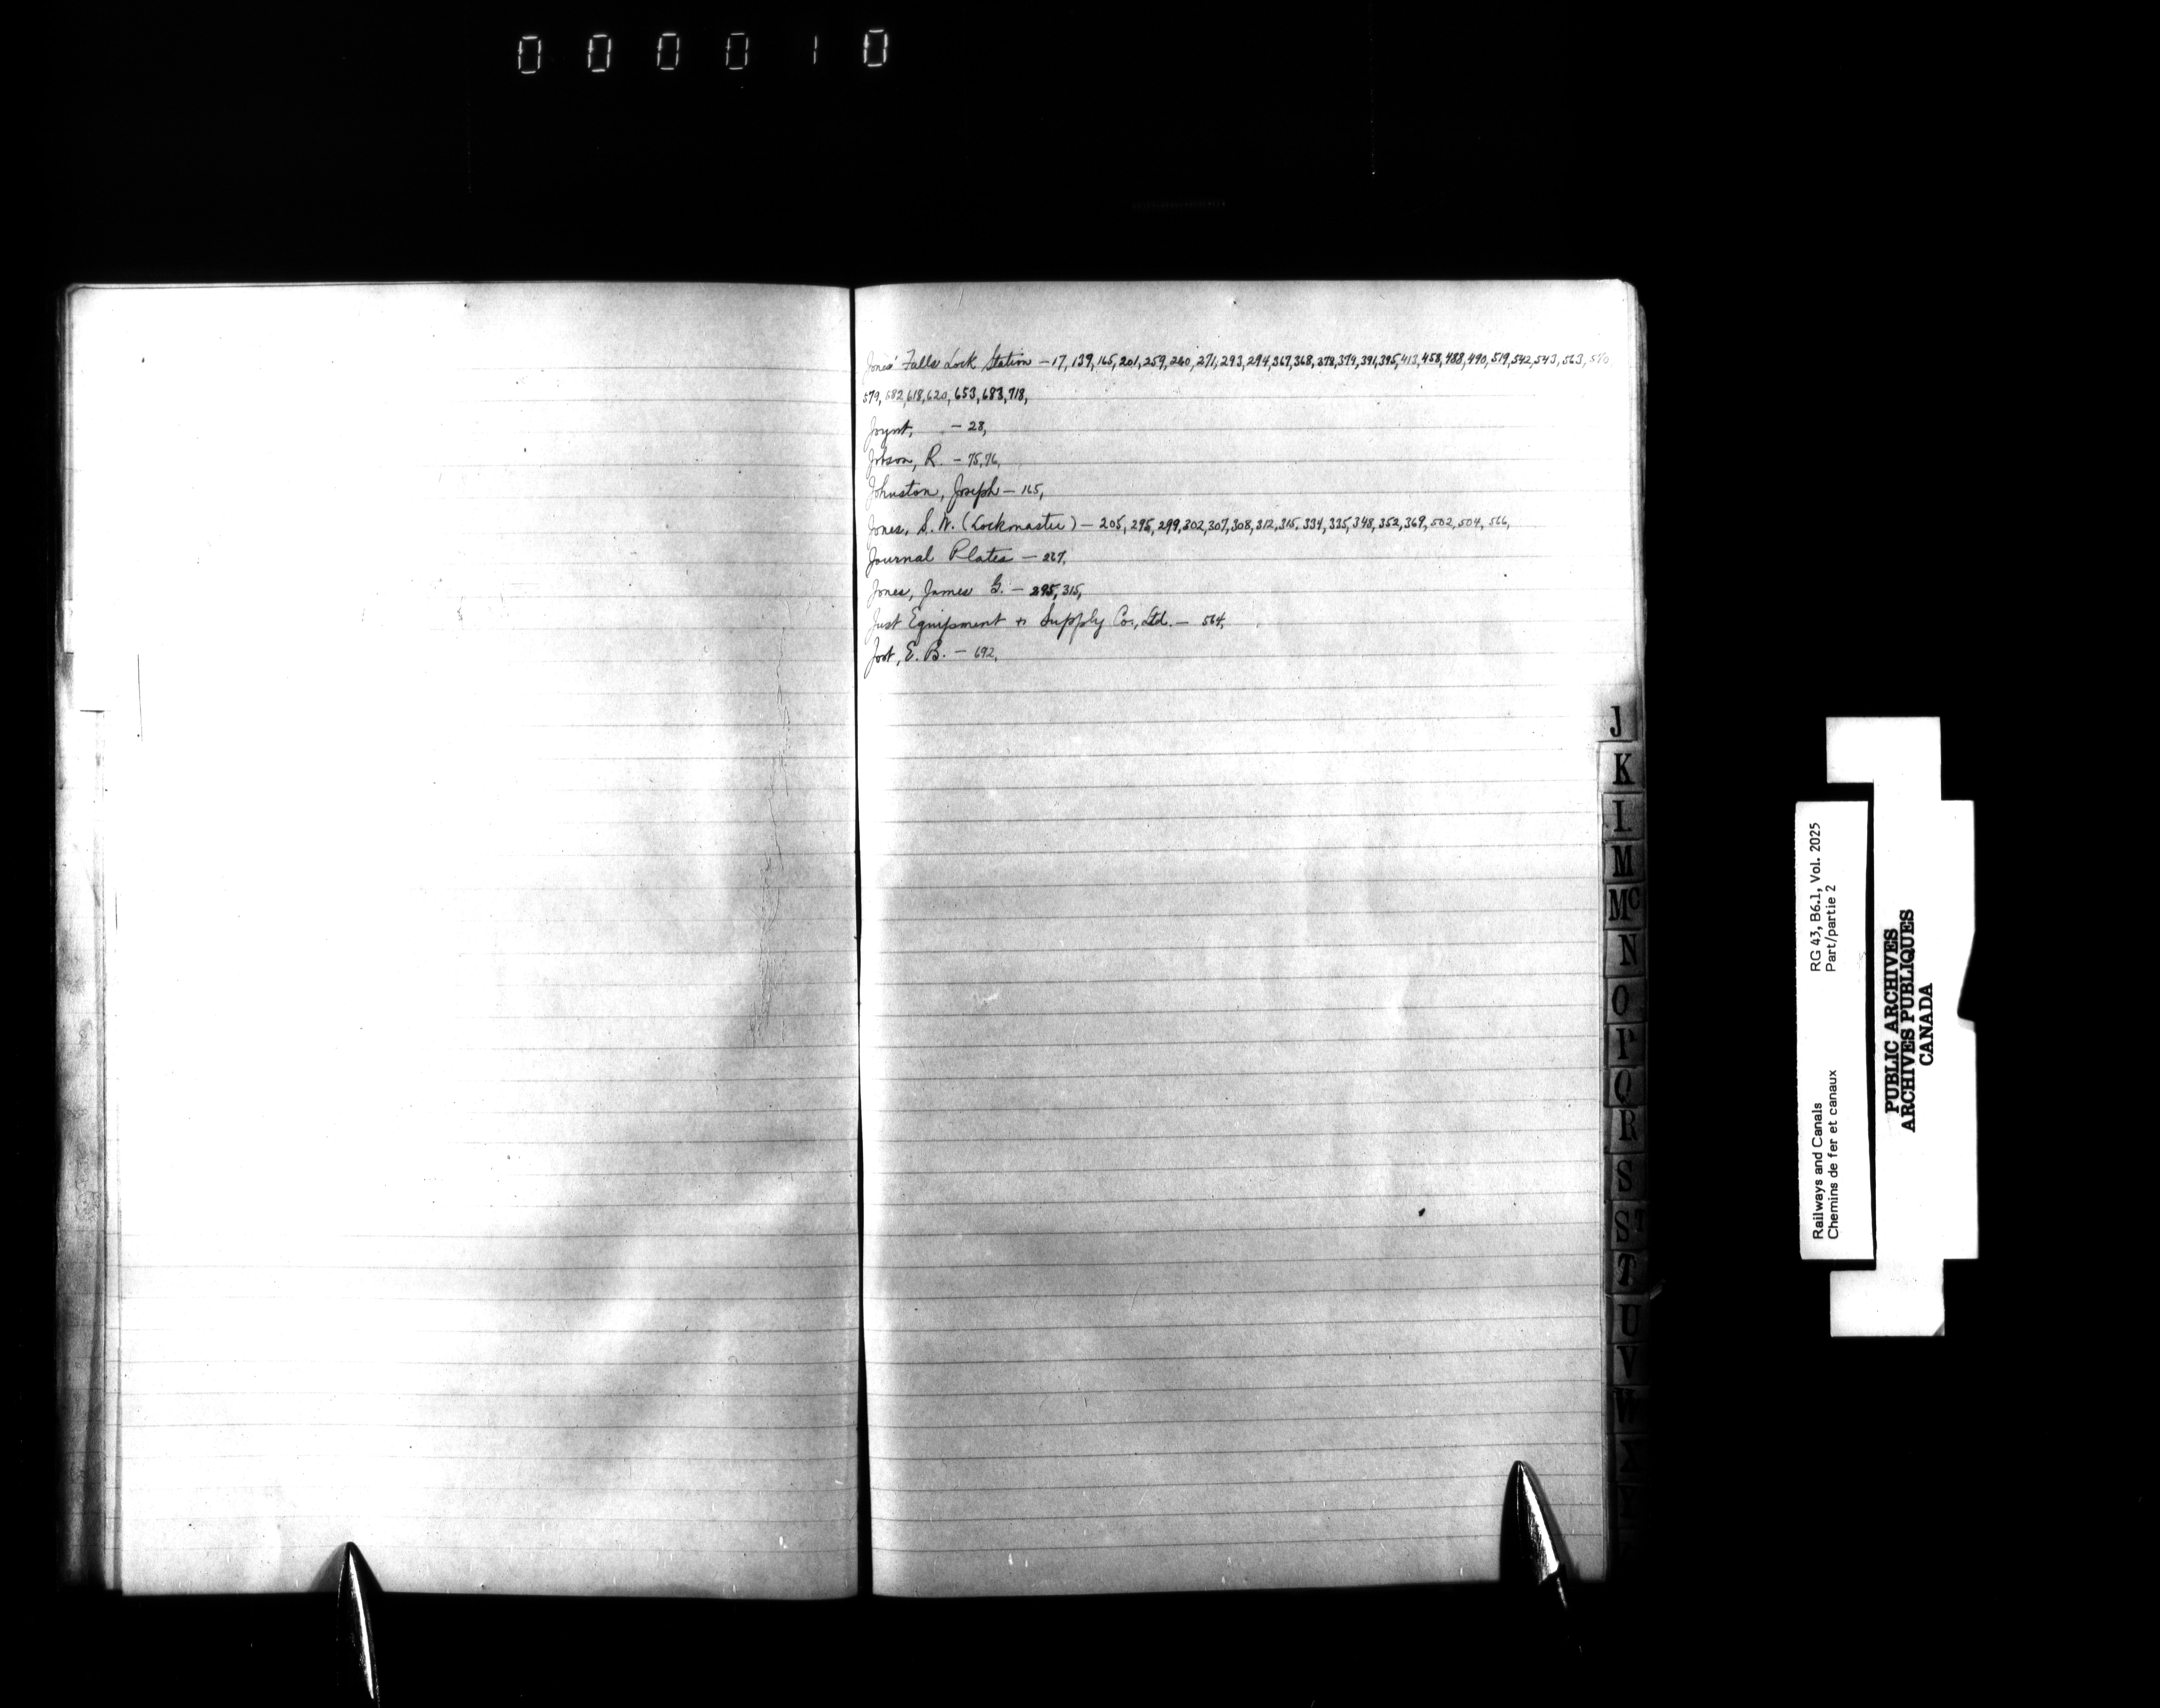 000010
Jones' Falls Lock Station — 17, 139, 165, 201, 259, 260, 271, 293, 294, 367, 368, 378, 379, 391, 395, 413, 458, 488, 490, 519, 542, 543, 563, 570,
579, 582, 618, 620, 653, 683, 718,
Joynt, — 28,
Jobson, R. — 75, 76,
Johnston, Joseph — 165,
Jones, S. W. (Lockmaster) — 205, 295, 299, 302, 307, 308, 312, 315, 334, 335, 348, 352, 369, 502, 504, 566,
Journal Plates — 267,
Jones, James G. — 295, 315,
Just Equipment & Supply Co., Ltd. — 564,
Jost, E. B. — 692,
J
K
L
M
Mc
N
O
P
Q
R
S
ST
T
U
V
W
Railways and Canals RG 43, B6.1, Vol. 2025
Chemins de fer et canaux Part/partie 2
PUBLIC ARCHIVES
ARCHIVES PUBLIQUES
CANADA